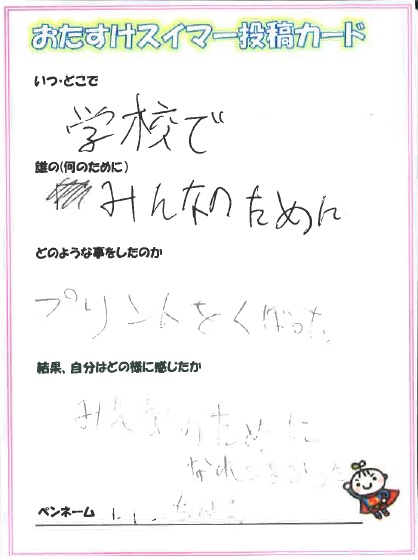 おたすけスイマー投稿カード
いつ・どこで
学校で
誰の(何のために)
みんなのために
どのような事をしたのか
プリントをくばった
結果、自分はどの様に感じたか
みんなのために
ペンネーム